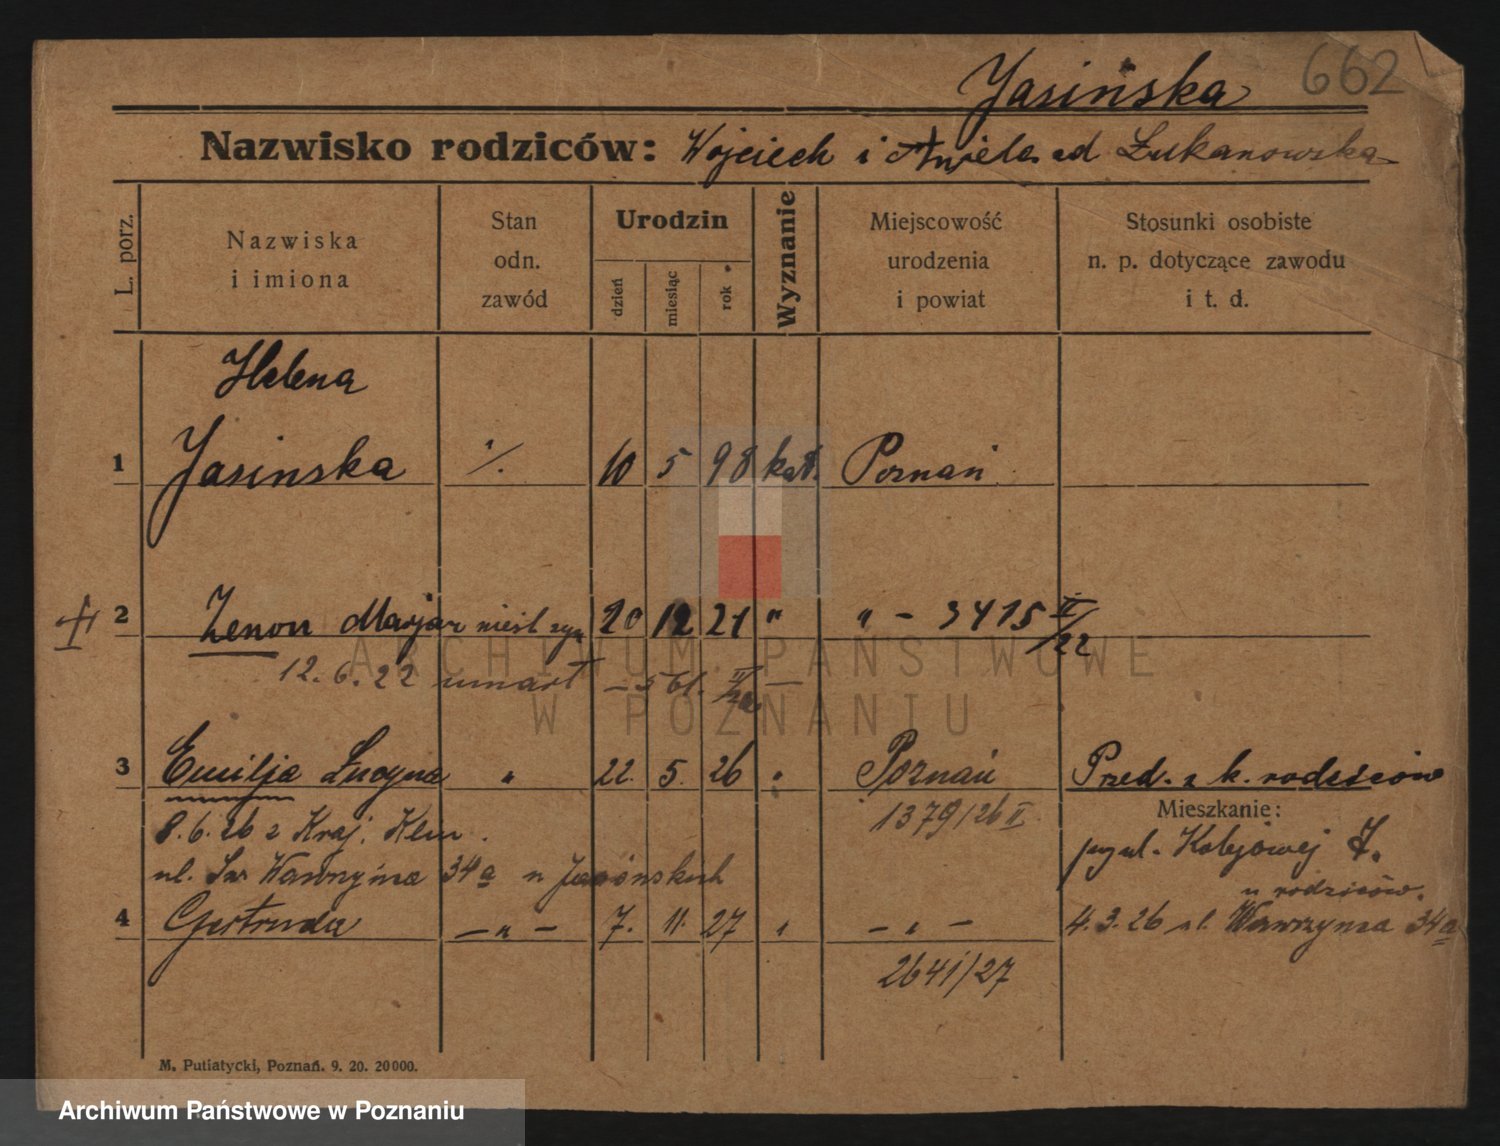 662
Jasińska
Nazwisko rodziców: Wojciech i Aniela od Łukanowska
L. porz.
Nazwiska
i imiona
Stan
odn.
zawód
Urodzin
dzień
miesiąc
rok
Wyznanie
Miejscowość
urodzenia
i powiat
Stosunki osobiste
n. p. dotyczące zawodu
i t. d.
Helena
1 Jasinska 10 5 98 kat. Poznań
2 Zenon Marjan nieśl. syn 20 12 21 " " - 3415 II/22
12.6.22 umarł
3 Emilja Lucyna " 22. 5. 26 " Poznań Przed. z k. rodziców
1379/26 II.
Mieszkanie:
8.6.26 z Kraj. Klin.
ul. Kolejowej 7.
ul. Św Wawrzyńca 34a u Jasińskich
u rodziców.
4 Gertruda - " - 7. 11. 27 " - " - 4.3.26 ul. Wawrzyńca 34a
2641/27
M. Putiatycki, Poznań. 9. 20. 20000.
ARCHIWUM PAŃSTWOWE
W POZNANIU
Archiwum Państwowe w Poznaniu